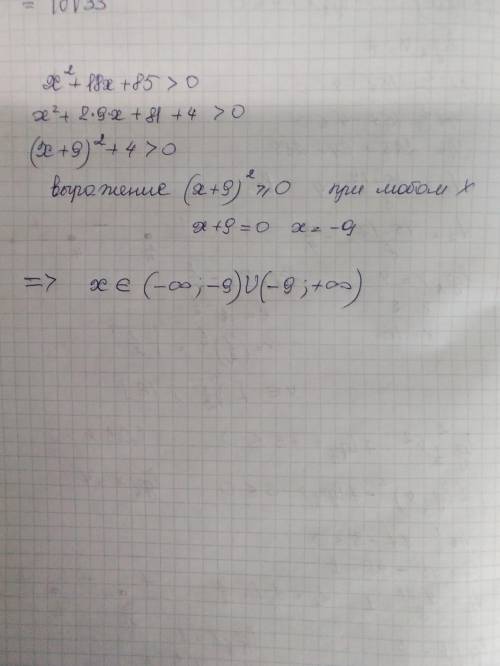 = 10√33
x² + 18x + 85 > 0
x² + 2·9·x + 81 + 4 > 0
(x+9)² + 4 > 0
выражение (x+9)² ⩾ 0 при любом x
x+9=0 x=-9
=> x ∈ (-∞;-9)∪(-9;+∞)